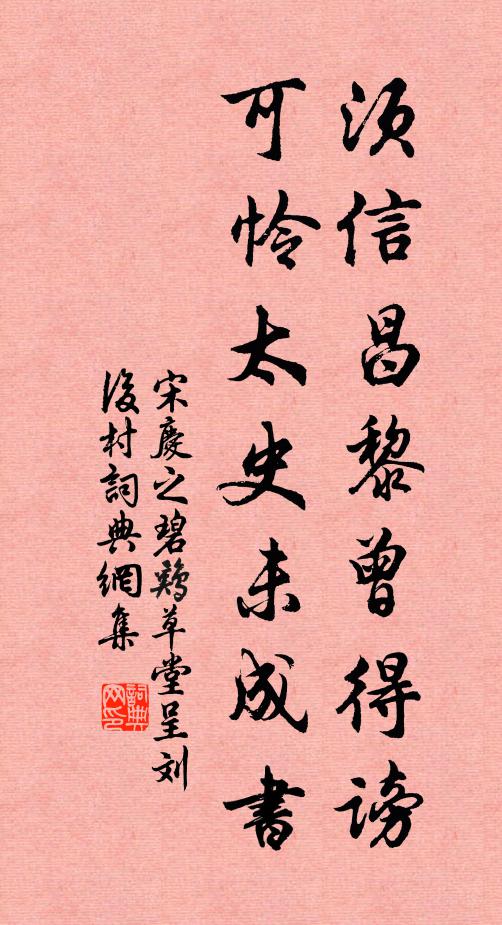 须信昌黎曾得谤
可怜太史未成書
宋慶之碧鶏草堂呈刘
後村詞典網集
詞典网印